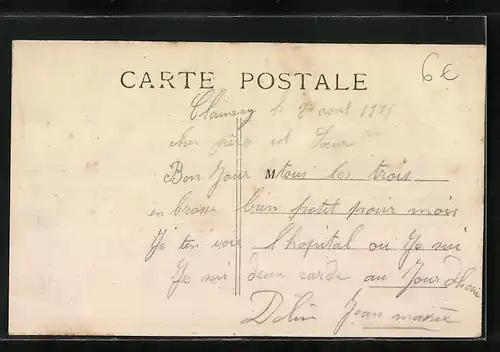 6€
CARTE POSTALE
Clamecy le 8 aout 1915
cher père et Sœur
Bon Jour M tous les trois
en brase bien petit pour mois
Je ten voie l'hopital ou Je sui
Je sui deux carde au Jour dhuie
Dolin Jean marie